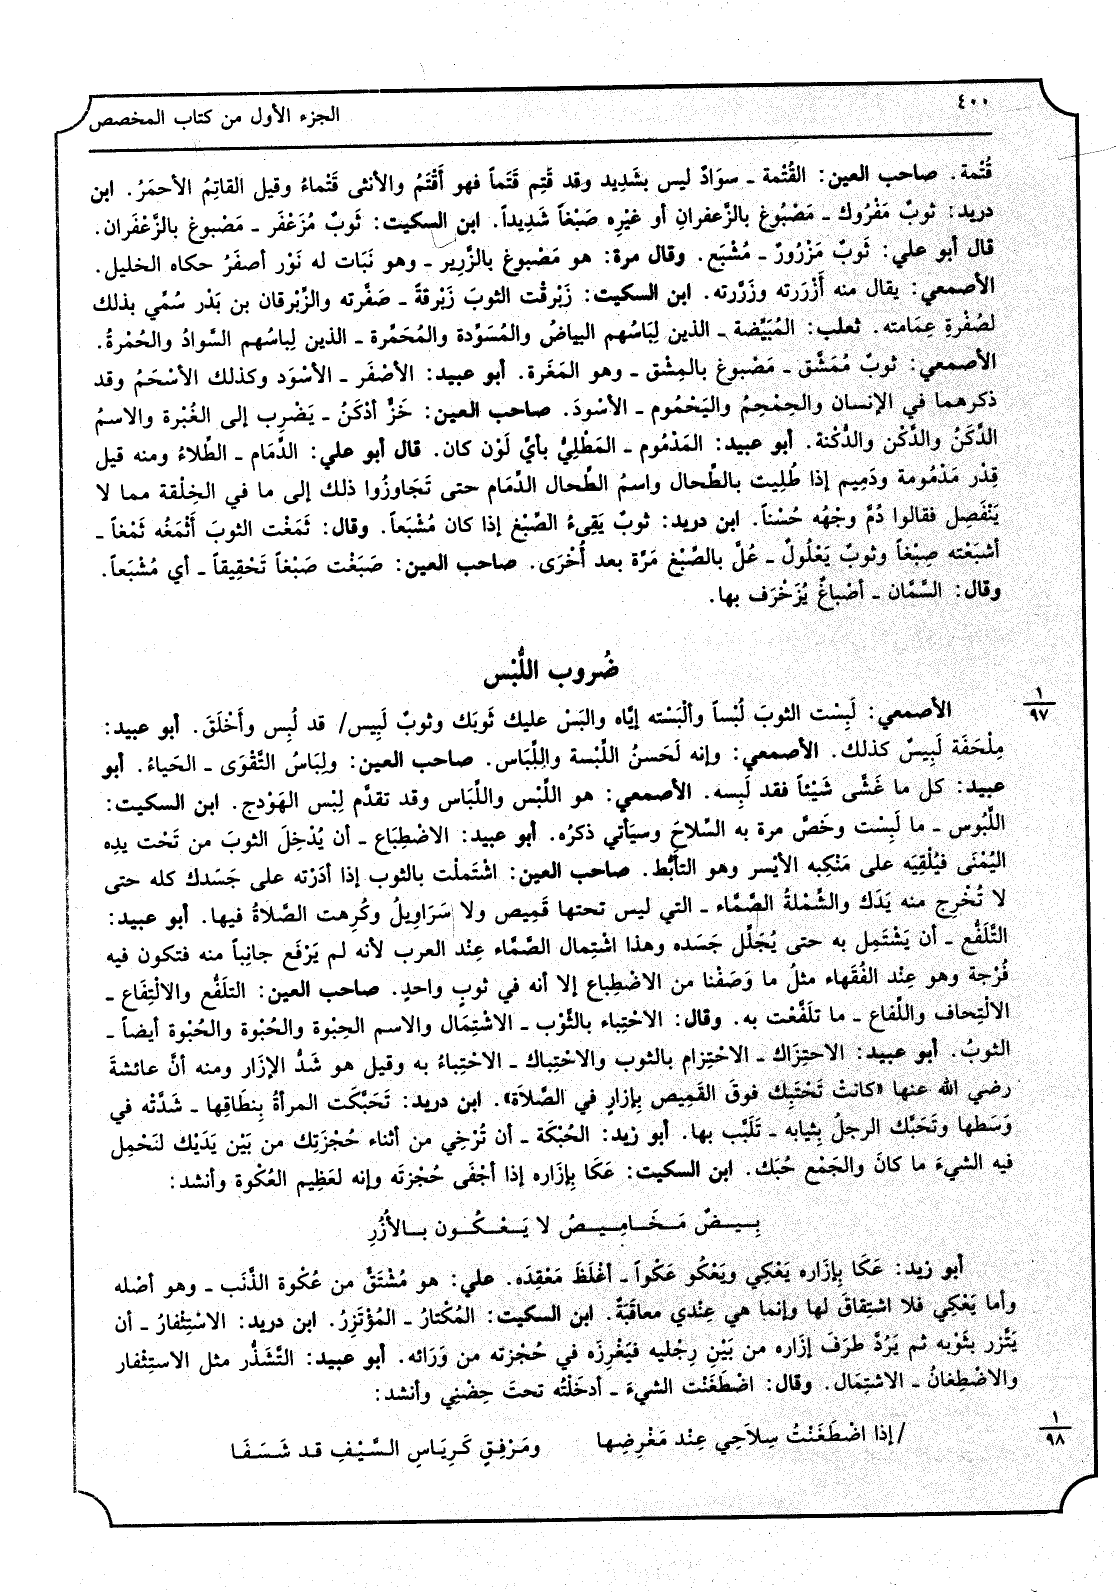 ٤٠٠
الجزء الأول من كتاب المخصص
قُتْمة. صاحب العين: القُتْمة ـ سوَادٌ ليس بشَدِيد وقد قَتِم قَتَماً فهو أَقْتَمُ والأنثى قَتْماءُ وقيل القاتِمُ الأحمَرُ. ابن
دريد: ثوبٌ مَفْرُوك ـ مَصْبُوغ بالزَّعفرانِ أو غيْرِه صَبْغاً شَدِيداً. ابن السكيت: ثَوبٌ مُزَعْفَر ـ مَصْبوغ بالزَّعْفَران.
قال أبو علي: ثَوبٌ مَزْرُورٌ ـ مُشْبَع. وقال مرة: هو مَصْبوغ بالزَّرِير ـ وهو نَبَات له نَوْر أصفَرُ حكاه الخليل.
الأصمعي: يقال منه أَزْرَرته وزَرَّرته. ابن السكيت: زَبْرقْت الثوبَ زَبْرقةً ـ صَفَّرته والزِّبْرقان بن بَدْر سُمِّي بذلك
لصُفْرةِ عِمَامته. ثعلب: المُبَيِّضة ـ الذين لِبَاسُهم البياضُ والمُسَوِّدة والمُحَمِّرة ـ الذين لِباسُهم السَّوادُ والحُمْرةُ.
الأصمعي: ثوبٌ مُمَشَّق ـ مَصْبوغ بالمِشْق ـ وهو المَغَرة. أبو عبيد: الأصْفَر ـ الأسْوَد وكذلك الأسْحَمُ وقد
ذكرهما في الإنسان والحِمْحِمُ واليَحْمُوم ـ الأسْودَ. صاحب العين: خَزٌّ أدْكَنُ ـ يَضْرِب إلى الغُبْرة والاسمُ
الدَّكَنُ والدَّكْن والدُّكْنة. أبو عبيد: المَدْمُوم ـ المَطْلِيُّ بأيِّ لَوْن كان. قال أبو علي: الدِّمَام ـ الطِّلاءُ ومنه قيل
قِدْر مَدْمُومة ودَمِيم إذا طُلِيت بالطِّحال واسمُ الطِّحال الدِّمَام حتى تَجَاوزُوا ذلك إلى ما في الخِلْقة مما لا
يَنْفَصِل فقالوا دُمَّ وجْهُه حُسْناً. ابن دريد: ثوبٌ يَقِيءُ الصِّبْغ إذا كان مُشْبَعاً. وقال: ثَمَغْت الثوبَ أَثْمَغُه ثَمْغاً ـ
أشبَعْته صِبْغاً وثوبٌ يَعْلُولٌ ـ عُلَّ بالصِّبْغ مَرَّة بعد أُخْرَى. صاحب العين: صَبَغْت صَبْغاً تَحْقِيقاً ـ أي مُشْبَعاً.
وقال: السِّمَّان ـ أصْباغٌ يُزَخْرَف بها.
ضُروب اللُّبْس
١
٩٧
الأصمعي: لَبِسْت الثوبَ لُبْساً وألْبَسْته إيَّاه والبَسْ عليك ثَوبَك وثوبٌ لَبِيس/ قد لُبِس وأَخْلَقَ. أبو عبيد:
مِلْحَفَة لَبِيسٌ كذلك. الأصمعي: وإنه لَحَسنُ اللِّبْسة واللِّبَاس. صاحب العين: ولِبَاسُ التَّقْوَى ـ الحَياءُ. أبو
عبيد: كل ما غَشَّى شَيْئاً فقد لَبِسه. الأصمعي: هو اللِّبْس واللِّبَاس وقد تقدَّم لِبْس الهَوْدج. ابن السكيت:
اللَّبُوس ـ ما لَبِسْت وخَصَّ مرة به السِّلاحَ وسيَأتي ذكرُه. أبو عبيد: الاضْطِبَاع ـ أن يُدْخِلَ الثوبَ من تَحْت يدِه
اليُمْنَى فيُلْقِيَه على مَنْكِبه الأيْسر وهو التأبُّط. صاحب العين: اشْتَملْت بالثوب إذا أدَرْته على جَسَدك كله حتى
لا تُخْرِج منه يَدَك والشَّمْلةُ الصَّمَّاء ـ التي ليس تحتها قَمِيص ولا سَرَاوِيلُ وكُرِهت الصَّلاةُ فيها. أبو عبيد:
التَّلَفُّع ـ أن يَشْتَمِل به حتى يُجَلِّل جَسَده وهذا اشْتِمال الصَّمَّاء عِنْد العرب لأنه لم يَرْفَع جانِباً منه فتكون فيه
فُرْجة وهو عِنْد الفُقَهاء مثلُ ما وَصَفْنا من الاضْطِباع إلا أنه في ثوبٍ واحدٍ. صاحب العين: التلَفُّع والالْتِفَاع ـ
الالْتِحاف واللِّفاع ـ ما تلَفَّعْت به. وقال: الاحْتِباء بالثَّوْب ـ الاشْتِمَال والاسم الحِبْوة والحُبْوة والحُبْوة أيضاً ـ
الثوبُ. أبو عبيد: الاحتِزَاك ـ الاحْتِزام بالثوب والاحْتِباك ـ الاحْتِباءُ به وقيل هو شَدُّ الإزَار ومنه أنَّ عائشةَ
رضي الله عنها «كانتْ تَحْتَبِك فوقَ القَمِيص بإزارٍ في الصَّلاَة». ابن دريد: تَحَبَّكَت المرأةُ بِنطَاقِها ـ شَدَّتْه في
وَسَطها وتَحَبَّك الرجلُ بِثيابه ـ تَلَبَّب بها. أبو زيد: الحُبْكَة ـ أن تُرْخِي من أثناء حُجْزَتِك من بَيْن يَدَيْك لتَحْمِل
فيه الشيءَ ما كانَ والجَمْع حُبَك. ابن السكيت: عَكَا بِإزَاره إذا أجْفَى حُجْزتَه وإنه لعَظِيم العُكْوة وأنشد:
بِـيـضٌ مَـخَـامِـيـصُ لا يَـعْـكُـون بـالأُزُرِ
أبو زيد: عَكَا بِإزَاره يَعْكِي ويَعْكُو عَكْواً ـ أغْلَظَ مَعْقِدَه. علي: هو مُشْتَقٌّ من عُكْوة الذَّنَب ـ وهو أصْله
وأما يَعْكِي فلا اشتِقاقَ لها وإنما هي عِنْدي معاقَبَةٌ. ابن السكيت: المُكْتارُ ـ المُؤْتَزِرُ. ابن دريد: الاسْتِثْفارُ ـ أن
يَتَّزر بثَوْبه ثم يَرُدَّ طرَفَ إزَاره من بَيْنِ رِجْليه فيَغْرِزَه في حُجْزته من وَرَائه. أبو عبيد: التَّشَذُّر مثل الاستِثْفار
والاضْطِغانُ ـ الاشتِمَال. وقال: اضْطَغَنْت الشيءَ ـ أدخَلْتُه تحتَ حِضْنِي وأنشد:
١
٩٨
/إذا اضْطَغَنْتُ سِلاَحِي عِنْد مَغْرِضِها ومَرْفِقٍ كَرِيَاسِ السَّيْفِ قد شَسَفَا